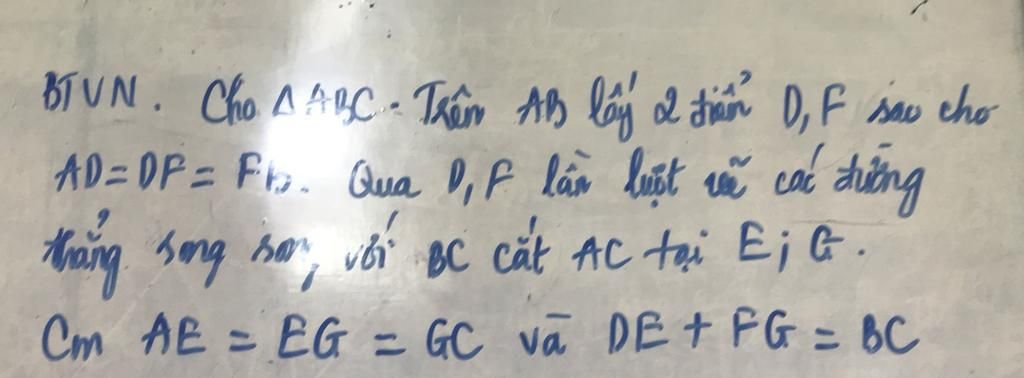 BTVN. Cho Δ ABC. Trên AB lấy 2 điểm D, F sao cho
AD = DF = FB. Qua D, F lần lượt vẽ các đường
thẳng song song với BC cắt AC tại E; G.
Cm AE = EG = GC và DE + FG = BC